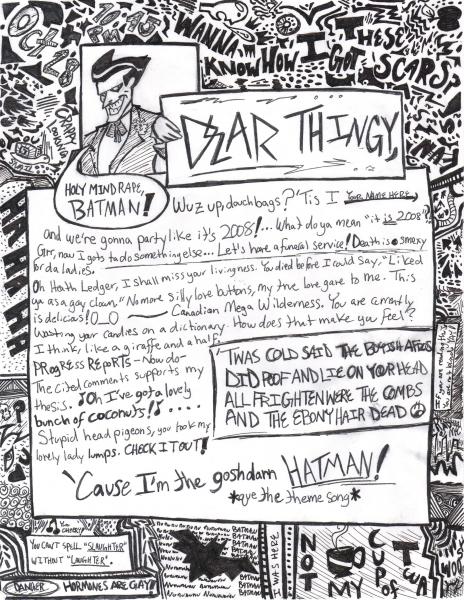 OCT 28
10:45 PM
WANNA KNOW HOW I GOT THESE SCARS?
DEAR THINGY,
HOLY MINDRAPE,
BATMAN!
Wuz up, douchbags? 'Tis I YOUR NAME HERE,
and we're gonna party like it's 2008!... What do ya mean "it is 2008"?
Grr, now I got to do something else... Let's have a funeral service! Death is smexy
for da ladies.
Oh Heath Ledger, I shall miss your livingness. You died before I could say, "I liked
ya as a gay clown." No more silly love buttons, my true love gave to me. This
is delicios! O_O Canadian Mega Wilderness. You are currently
wasting your candies on a dictionary. How does that make you feel?
I think, like a giraffe and a half.
PROgRess RepoRtS - Now do
The cited comments supports my
thesis. Oh I've got a lovely
bunch of coconuts!! ....
Stupid head pigeons, you took my
lovely lady lumps. CHECK IT OUT!
'TWAS COLD SAID THE BOYISH AFFRO
DID POOF AND LIE ON YOUR HEAD
ALL FRIGHTEN WERE THE COMBS
AND THE EBONY HAIR DEAD
'Cause I'm the goshdarn HATMAN!
*que the theme song*
YOU CAN'T SPELL "SLAUGHTER"
WITHOUT "LAUGHTER".
DANGER HORMONES ARE GAY!
BATMAN
BATMAN
BATMAN
I WAS HERE
NOT MY CUP of TEA